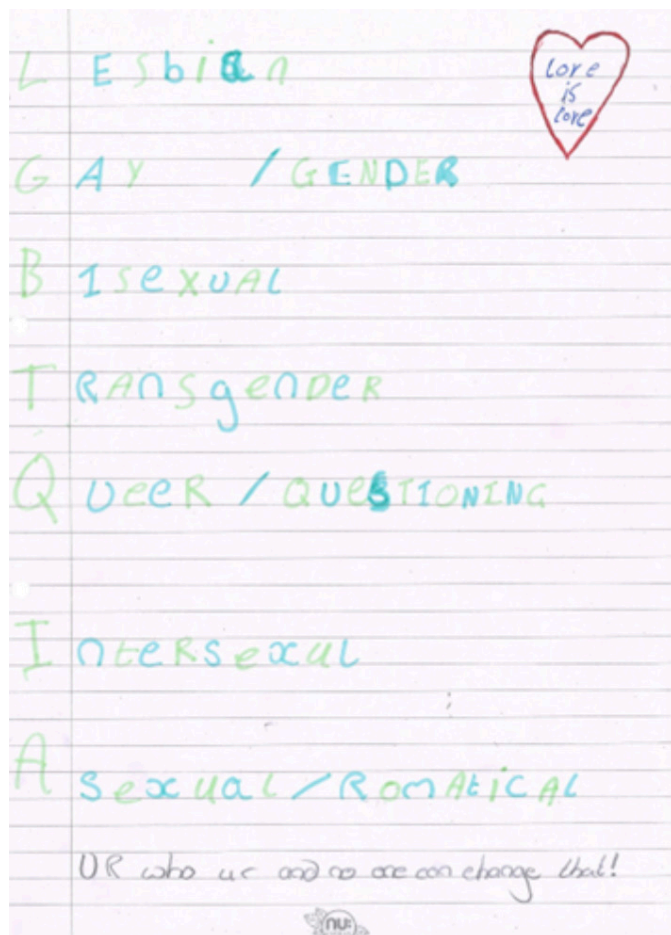 LESbian
love
is
love
GAY / GENDER
BISeXUAL
TRAnSgenDeR
QUeeR / QUeSTIONING
InteRSexuL
ASexual/RomAtiCAL
UR who ur and no one can change that!
nu: